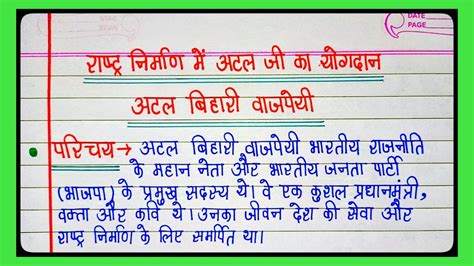 DATE
PAGE
राष्ट्र निर्माण में अटल जी का योगदान
अटल बिहारी वाजपेयी
परिचय→ अटल बिहारी वाजपेयी भारतीय राजनीति
के महान नेता और भारतीय जनता पार्टी
(भाजपा) के प्रमुख सदस्य थे। वे एक कुशल प्रधानमंत्री,
वक्ता और कवि थे। उनका जीवन देश की सेवा और
राष्ट्र निर्माण के लिए समर्पित था।